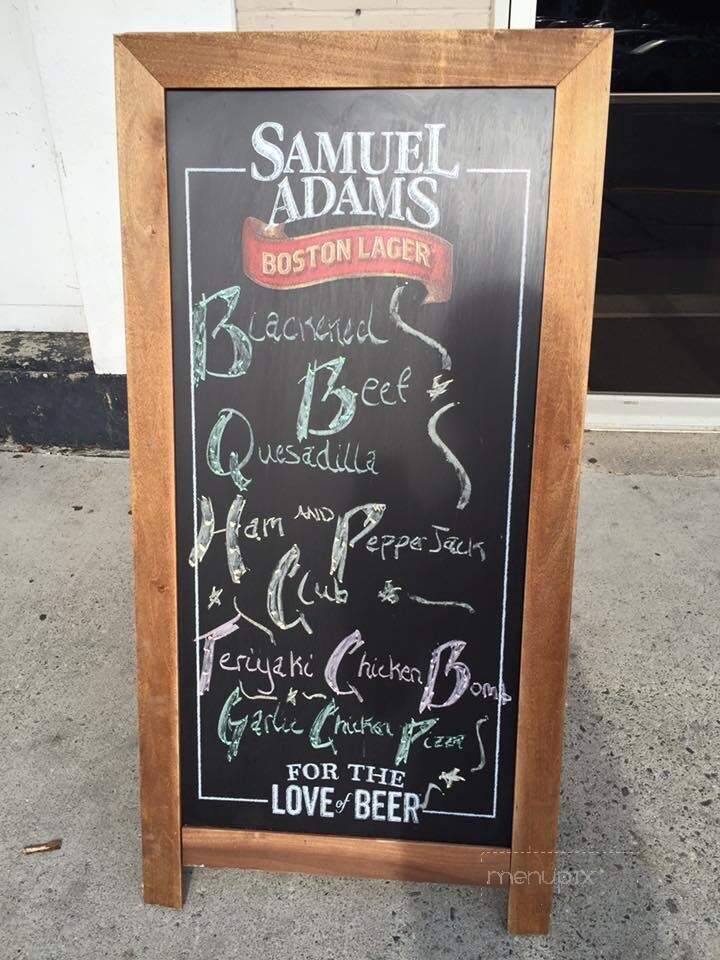 SAMUEL
ADAMS
BOSTON LAGER
Blackened
Beef
Quesadilla
Ham AND Pepper Jack
Club
Teriyaki Chicken Bomb
Garlic Chicken Pizza
FOR THE
LOVE of BEER
menupix